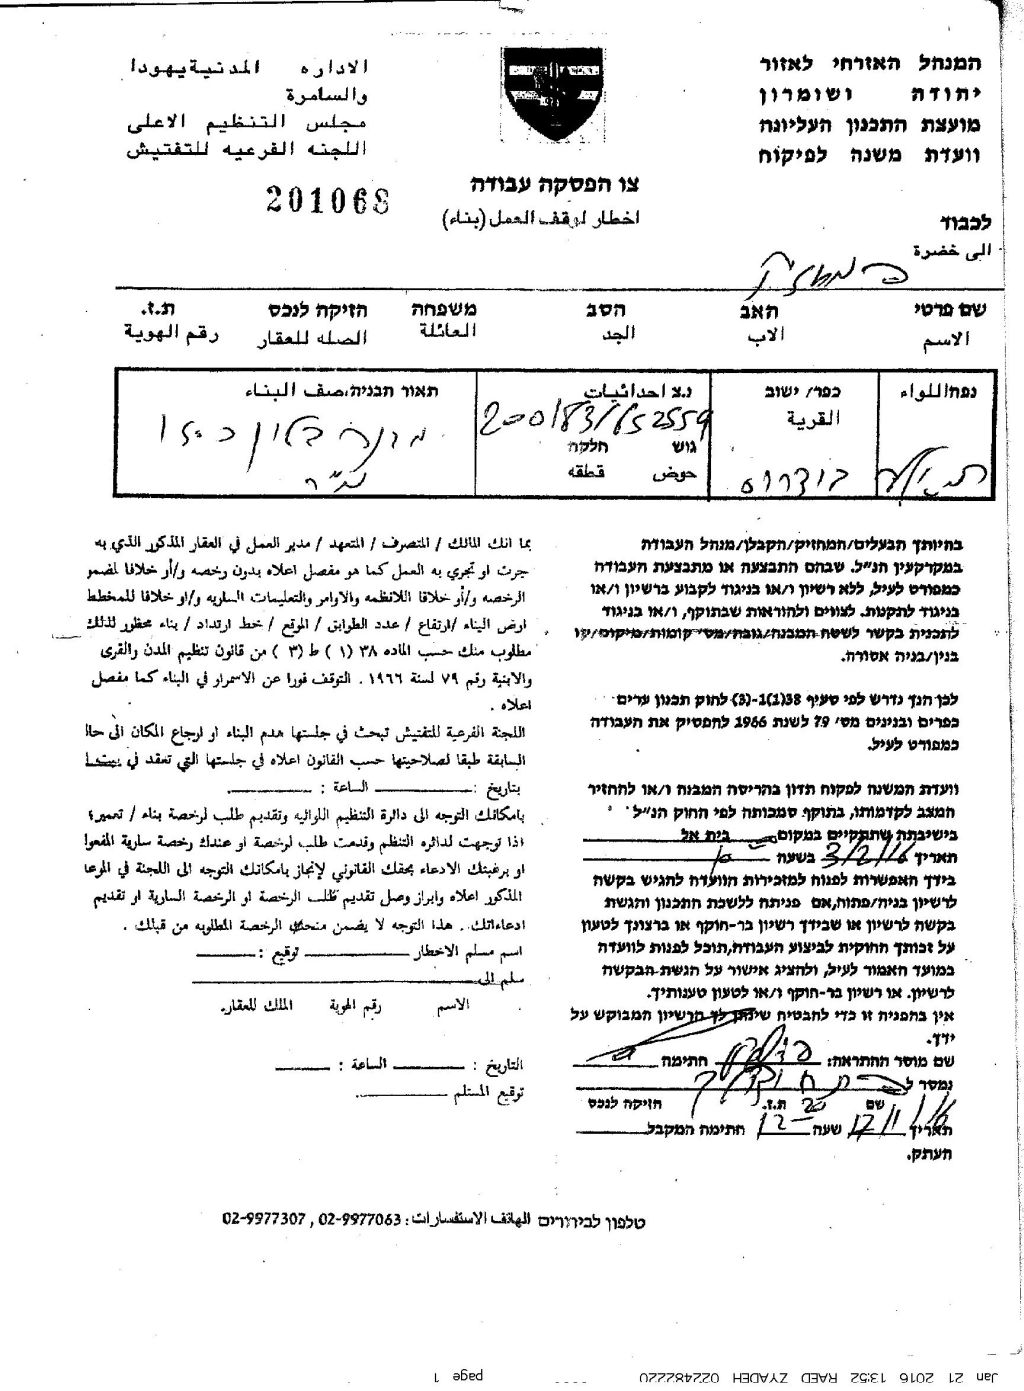 המנהל האזרחי לאזור
יהודה ושומרון
מועצת התכנון העליונה
וועדת משנה לפיקוח
الاداره المدنية يهودا
والسامرة
مجلس التنظيم الاعلى
اللجنه الفرعيه للتفتيش
201068
צו הפסקה עבודה
اخطار لوقف العمل (بناء)
לכבוד
الى حضرة
המחזיק
שם פרטי האב הסב משפחה הזיקה לנכס ת.ז.
الاسم الاب الجد العائلة الصله للعقار رقم الهوية
נפח/اللواء כפר/ ישוב נ.צ احداثيات תאור הבניה/صف البناء
القرية 200183/652559
גוש חלקה
حوض قطقه
בודרוס
מ"ר
בהיותך הבעלים/המחזיק/הקבלן/מנהל העבודה
במקרקעין הנ"ל. שבהם התבצעה או מתבצעת העבודה
כמפורט לעיל, ללא רשיון ו/או בניגוד לקבוע ברשיון ו/או
בניגוד לתקנות. לצווים ולהוראות שבתוקף, ו/או בניגוד
לתכנית בקשר לשטח המבנה/גובה/מס' קומות/מיקום/קו
בנין/בניה אסורה.
לכן הנך נדרש לפי סעיף 38(1)-(3) לחוק תכנון ערים
כפרים ובנינים מס' 79 לשנת 1966 להפסיק את העבודה
כמפורט לעיל.
וועדת המשנה לפקוח תדון בהריסה המבנה ו/או להחזיר
המצב לקדמותו, בתוקף סמכותה לפי החוק הנ"ל
בישיבתה שתתקיים במקום בית אל
תאריך 3/2/16 בשעה
בידך האפשרות לפנות למזכירות הוועדה להגיש בקשה
לרשיון בניה/פתוח, אם פניתה ללשכת התכנון והגשת
בקשה לרשיון או שבידך רשיון בר-תוקף או ברצונך לטעון
על זכותך החוקית לביצוע העבודה, תוכל לפנות לוועדה
במועד האמור לעיל, ולהציג אישור על הגשת הבקשה
לרשיון. או רשיון בר-תוקף ו/או לטעון טענותיך.
אין בהפניה זו כדי להבטיח שינתן לך הרשיון המבוקש על
ידך.
שם מוסר ההתראה: חתימה
נמסר ל
שם ת.ז. חזיקה לנכס
תאריך 17/1/16 שעה 12 חתימה המקבל
העתק.
بما انك المالك / المتصرف / المتعهد / مدير العمل في العقار المذكور الذي به
جرت او تجري به العمل كما هو مفصل اعلاه بدون رخصه و/أو خلافا لمضمو
الرخصه و/أو خلافا اللانظمه والاوامر والتعليمات الساريه و/او خلافا للمخطط
ارض البناء /ارتفاع / عدد الطوابق / الموقع / خط ارتداد / بناء محظور لذلك
مطلوب منك حسب الماده ٣٨ (١ ) ط (٣ ) من قانون تنظيم المدن والقرى
والابنية رقم ٧٩ لسنة ١٩٦٦. التوقف فورا عن الاسمرار في البناء كما مفصل
اعلاه .
اللجنة الفرعية للمفتيش تبحث في جلستها هدم البناء او ارجاع المكان الى حال
السابقة طبقا لصلاحيتها حسب القانون اعلاه في جلستها التي تعقد في
بتاريخ : الساعة :
بامكانك التوجه الى دائرة التنظيم اللوائيه وتقديم طلب لرخصة بناء / تعمير؛
اذا توجهت لدائره التنظم وقدمت طلب لرخصة او عندك رخصة سارية المفعوا
او برغبتك الادعاء بحقك القانوني لإنجاز بامكانك التوجه الى اللجنة في الموعا
المذكور اعلاه وابراز وصل تقديم طلب الرخصة او الرخصة السارية او تقديم
ادعاءاتك . هذا التوجه لا يضمن منحك الرخصة المطلوبه من قبلك .
اسم مسلم الاخطار توقيع :
سلم الى
الاسم رقم الهوية الملك للعقار.
التاريخ : الساعة :
توقيع المستلم
טלפון לבירורים الهاتف الاستفسارات: 02-9977063 , 02-9977307
Jan 21 2016 13:52 RAED ZYADEH 022482220 page 1